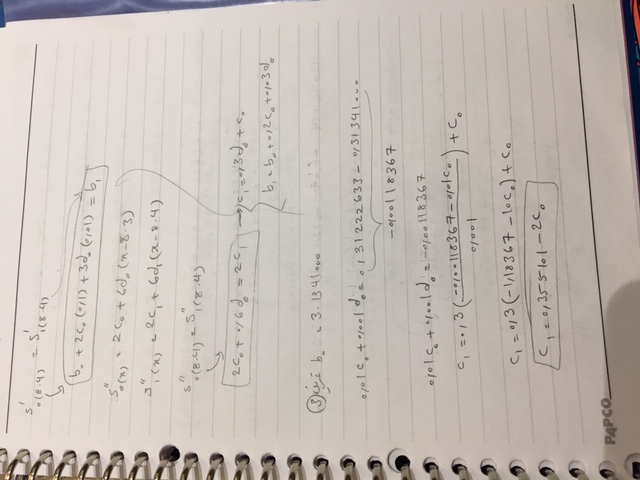 S'₀(8.4) = S'₁(8.4)
b₀ + 2c₀(0,1) + 3d₀(0,01) = b₁
S''₀(x) = 2c₀ + 6d₀(x-8.3)
S''₁(x) = 2c₁ + 6d₁(x-8.4)
S''₀(8.4) = S''₁(8.4)
2c₀ + 0,6d₀ = 2c₁ → c₁ = 0,3d₀ + c₀
b₁ = b₀ + 0,2c₀ + 0,03d₀
③ b₀ = 3.1341000
0,01c₀ + 0,001d₀ = 0,31222633 - 0,31341000
-0,00118367
0,01c₀ + 0,001d₀ = -0,00118367
c₁ = 0,3(-0,00118367 - 0,01c₀ / 0,001) + c₀
c₁ = 0,3(-1,18367 - 10c₀) + c₀
c₁ = 0,355101 - 2c₀
PAPCO